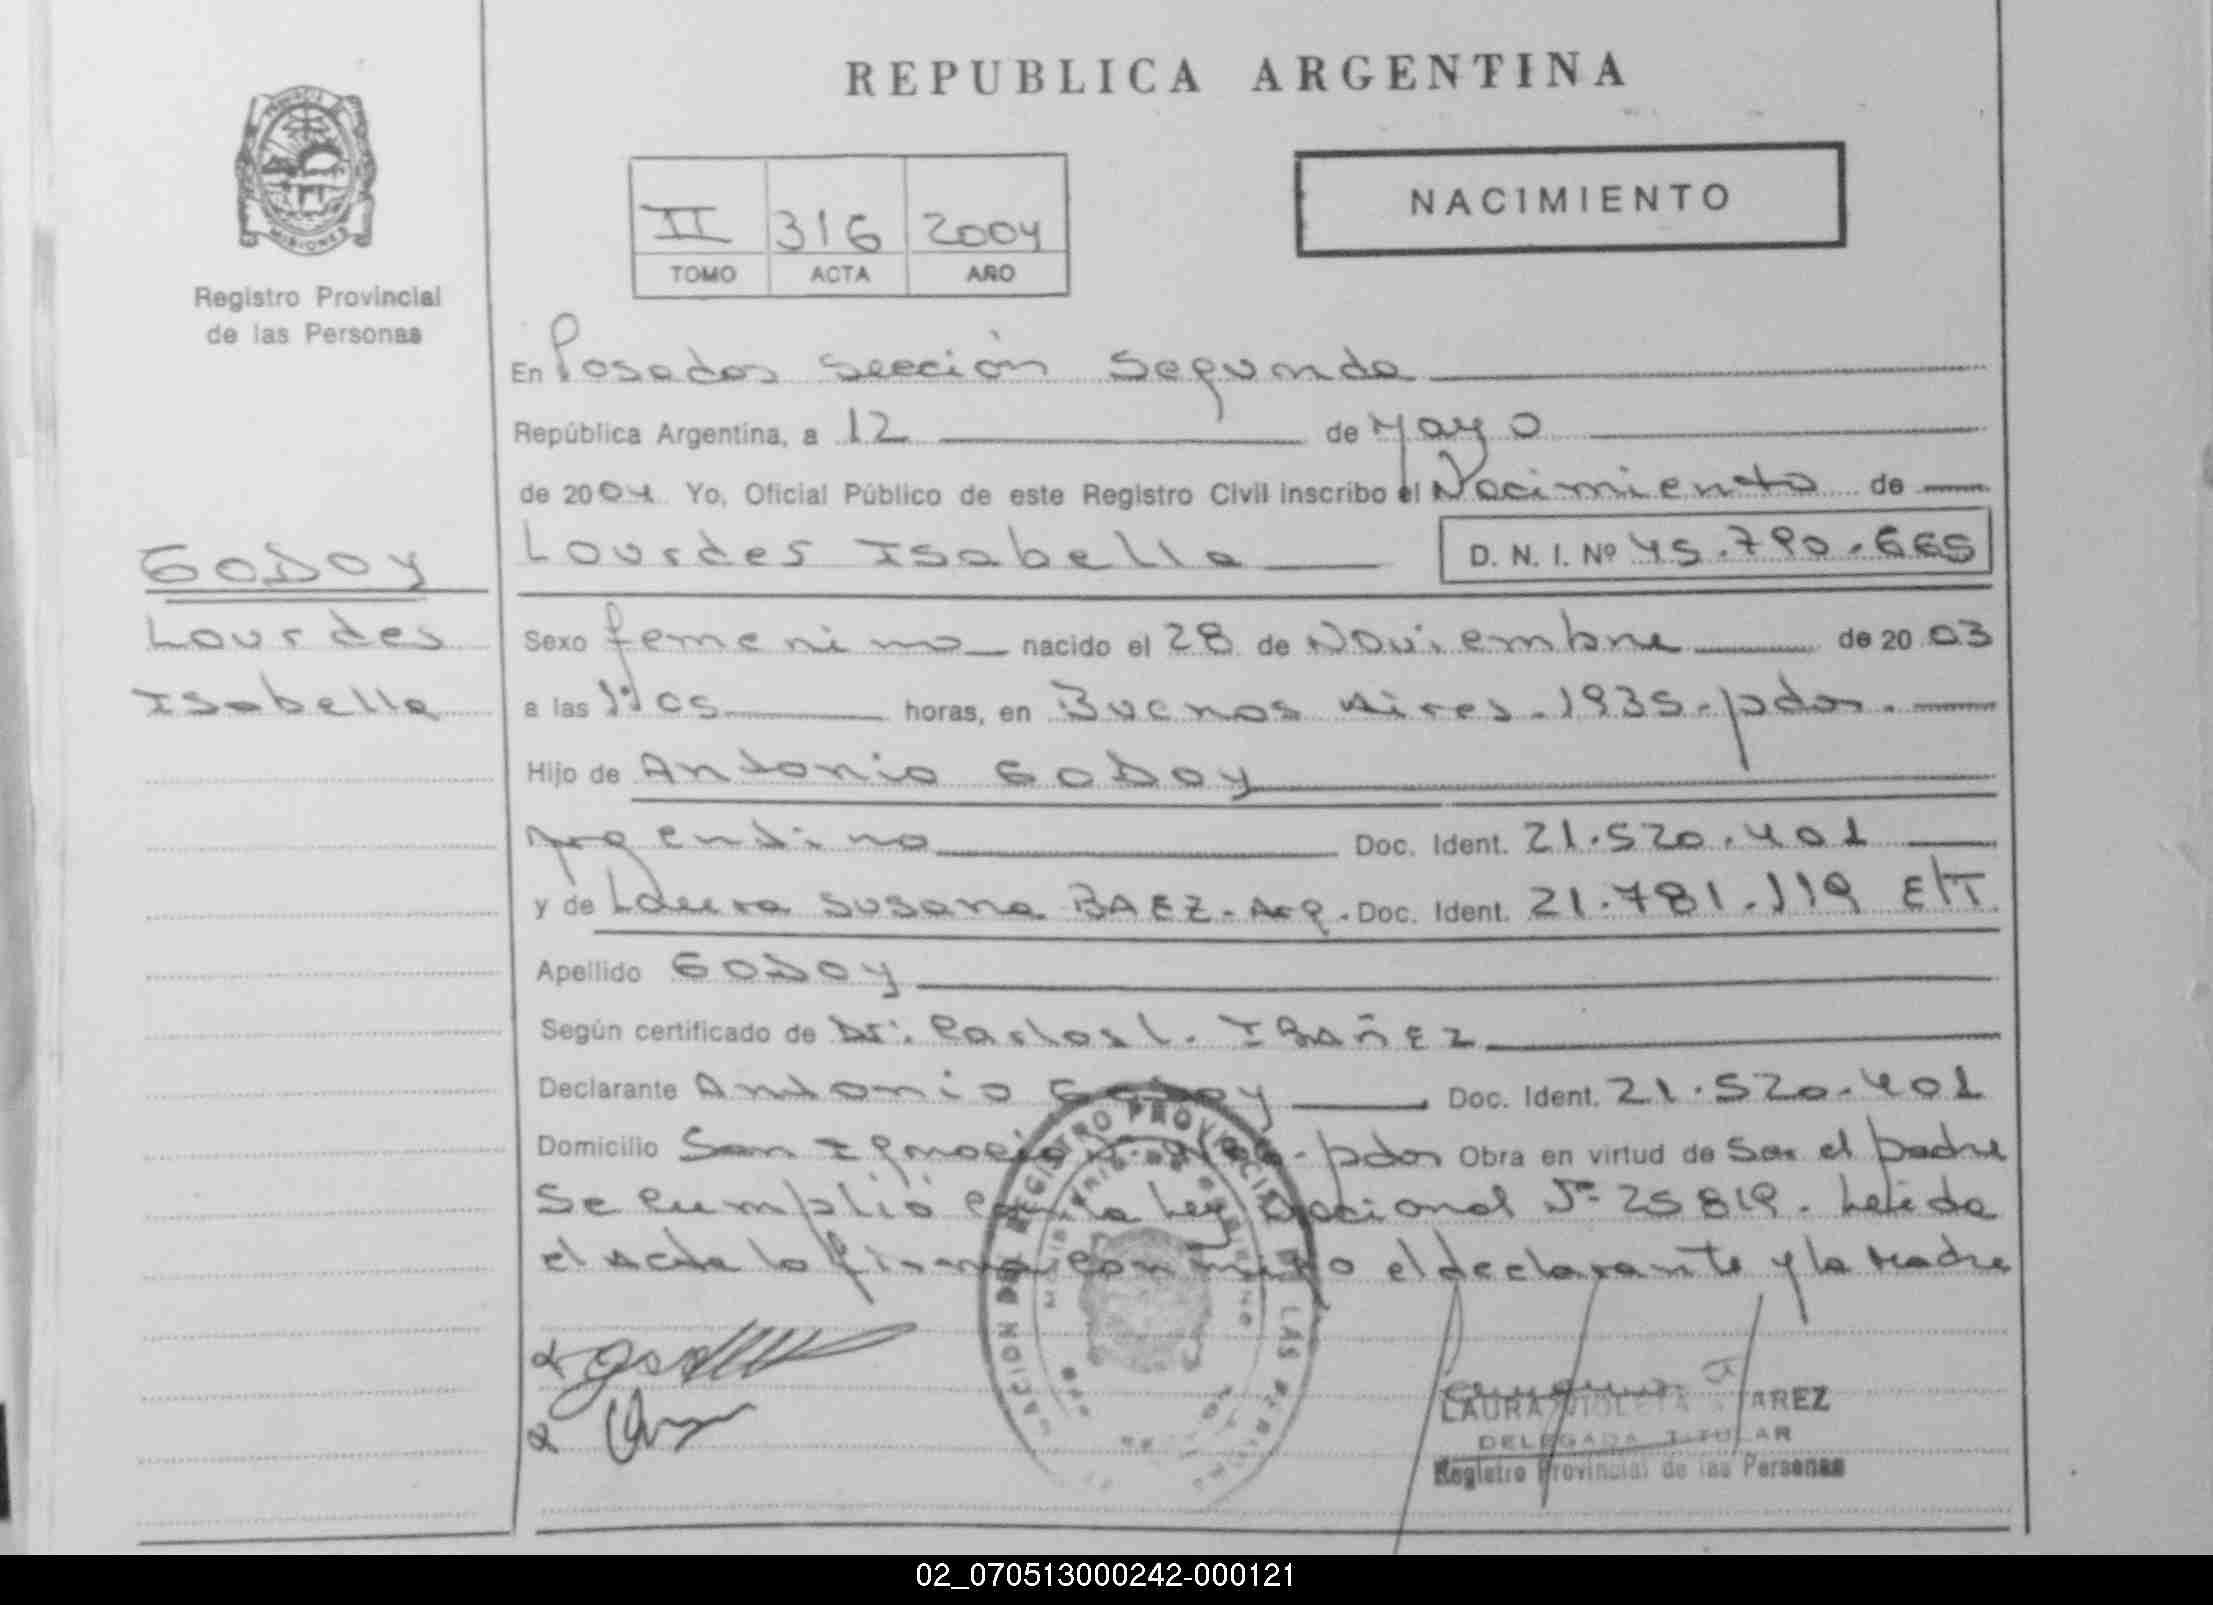 REPUBLICA ARGENTINA
PROVINCIA DE
MISIONES
Registro Provincial
de las Personas
II 316 2004
TOMO ACTA AÑO
NACIMIENTO
En Posadas Sección Segunda
República Argentina, a 12 de Mayo
de 2004 Yo, Oficial Público de este Registro Civil inscribo el Nacimiento de
Lourdes Isabella D. N. I. Nº 45.790.665
GODOY
Lourdes
Isabella
Sexo femenino nacido el 28 de Noviembre de 2003
a las 11:05 horas, en Buenos Aires. 1935. pdas.
Hijo de Antonio GODOY
Argentino Doc. Ident. 21.520.401
y de Laura Susana BAEZ - Arg. Doc. Ident. 21.781.119 E/T
Apellido GODOY
Según certificado de Dr: Carlos L. IBAÑEZ
Declarante Antonio Godoy Doc. Ident. 21.520.401
Domicilio San Ignacio - pdas Obra en virtud de Ser el padre
Se cumplió con la Ley Nacional Nº 25819. Leida
el acta la firma conmigo el declarante y la Madre
REGISTRO PROVINCIAL DE LAS PERSONAS
LAURA VIOLETA
DELEGADA TITULAR
Registro Provincial de las Personas
02_070513000242-000121